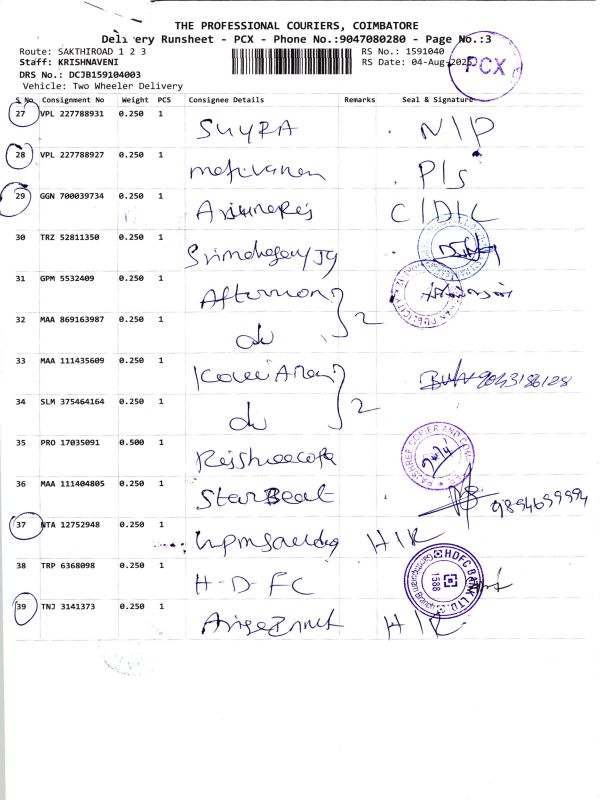 THE PROFESSIONAL COURIERS, COIMBATORE
Delivery Runsheet - PCX - Phone No.:9047080280 - Page No.:3
Route: SAKTHIROAD 1 2 3
RS No.: 1591040
Staff: KRISHNAVENI
RS Date: 04-Aug-2025
PCX
DRS No.: DCJB159104003
Vehicle: Two Wheeler Delivery
S No Consignment No Weight PCS Consignee Details Remarks Seal & Signature
27 VPL 227788931 0.250 1 N/P
28 VPL 227788927 0.250 1 P/s
29 GGN 700039734 0.250 1
30 TRZ 52811350 0.250 1
31 GPM 5532409 0.250 1 Afternoon
32 MAA 869163987 0.250 1 do 2
33 MAA 111435609 0.250 1 9043186128
34 SLM 375464164 0.250 1 do 2
35 PRO 17035091 0.500 1
36 MAA 111404805 0.250 1 Star Beat 9894699994
37 NTA 12752948 0.250 1 H/K
38 TRP 6368098 0.250 1 H-D-FC HDFC BANK LTD. 1588
39 TNJ 3141373 0.250 1 H/K